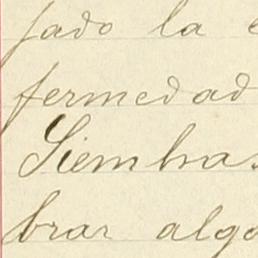 jado la e
fermedad
Siembras
brar algo